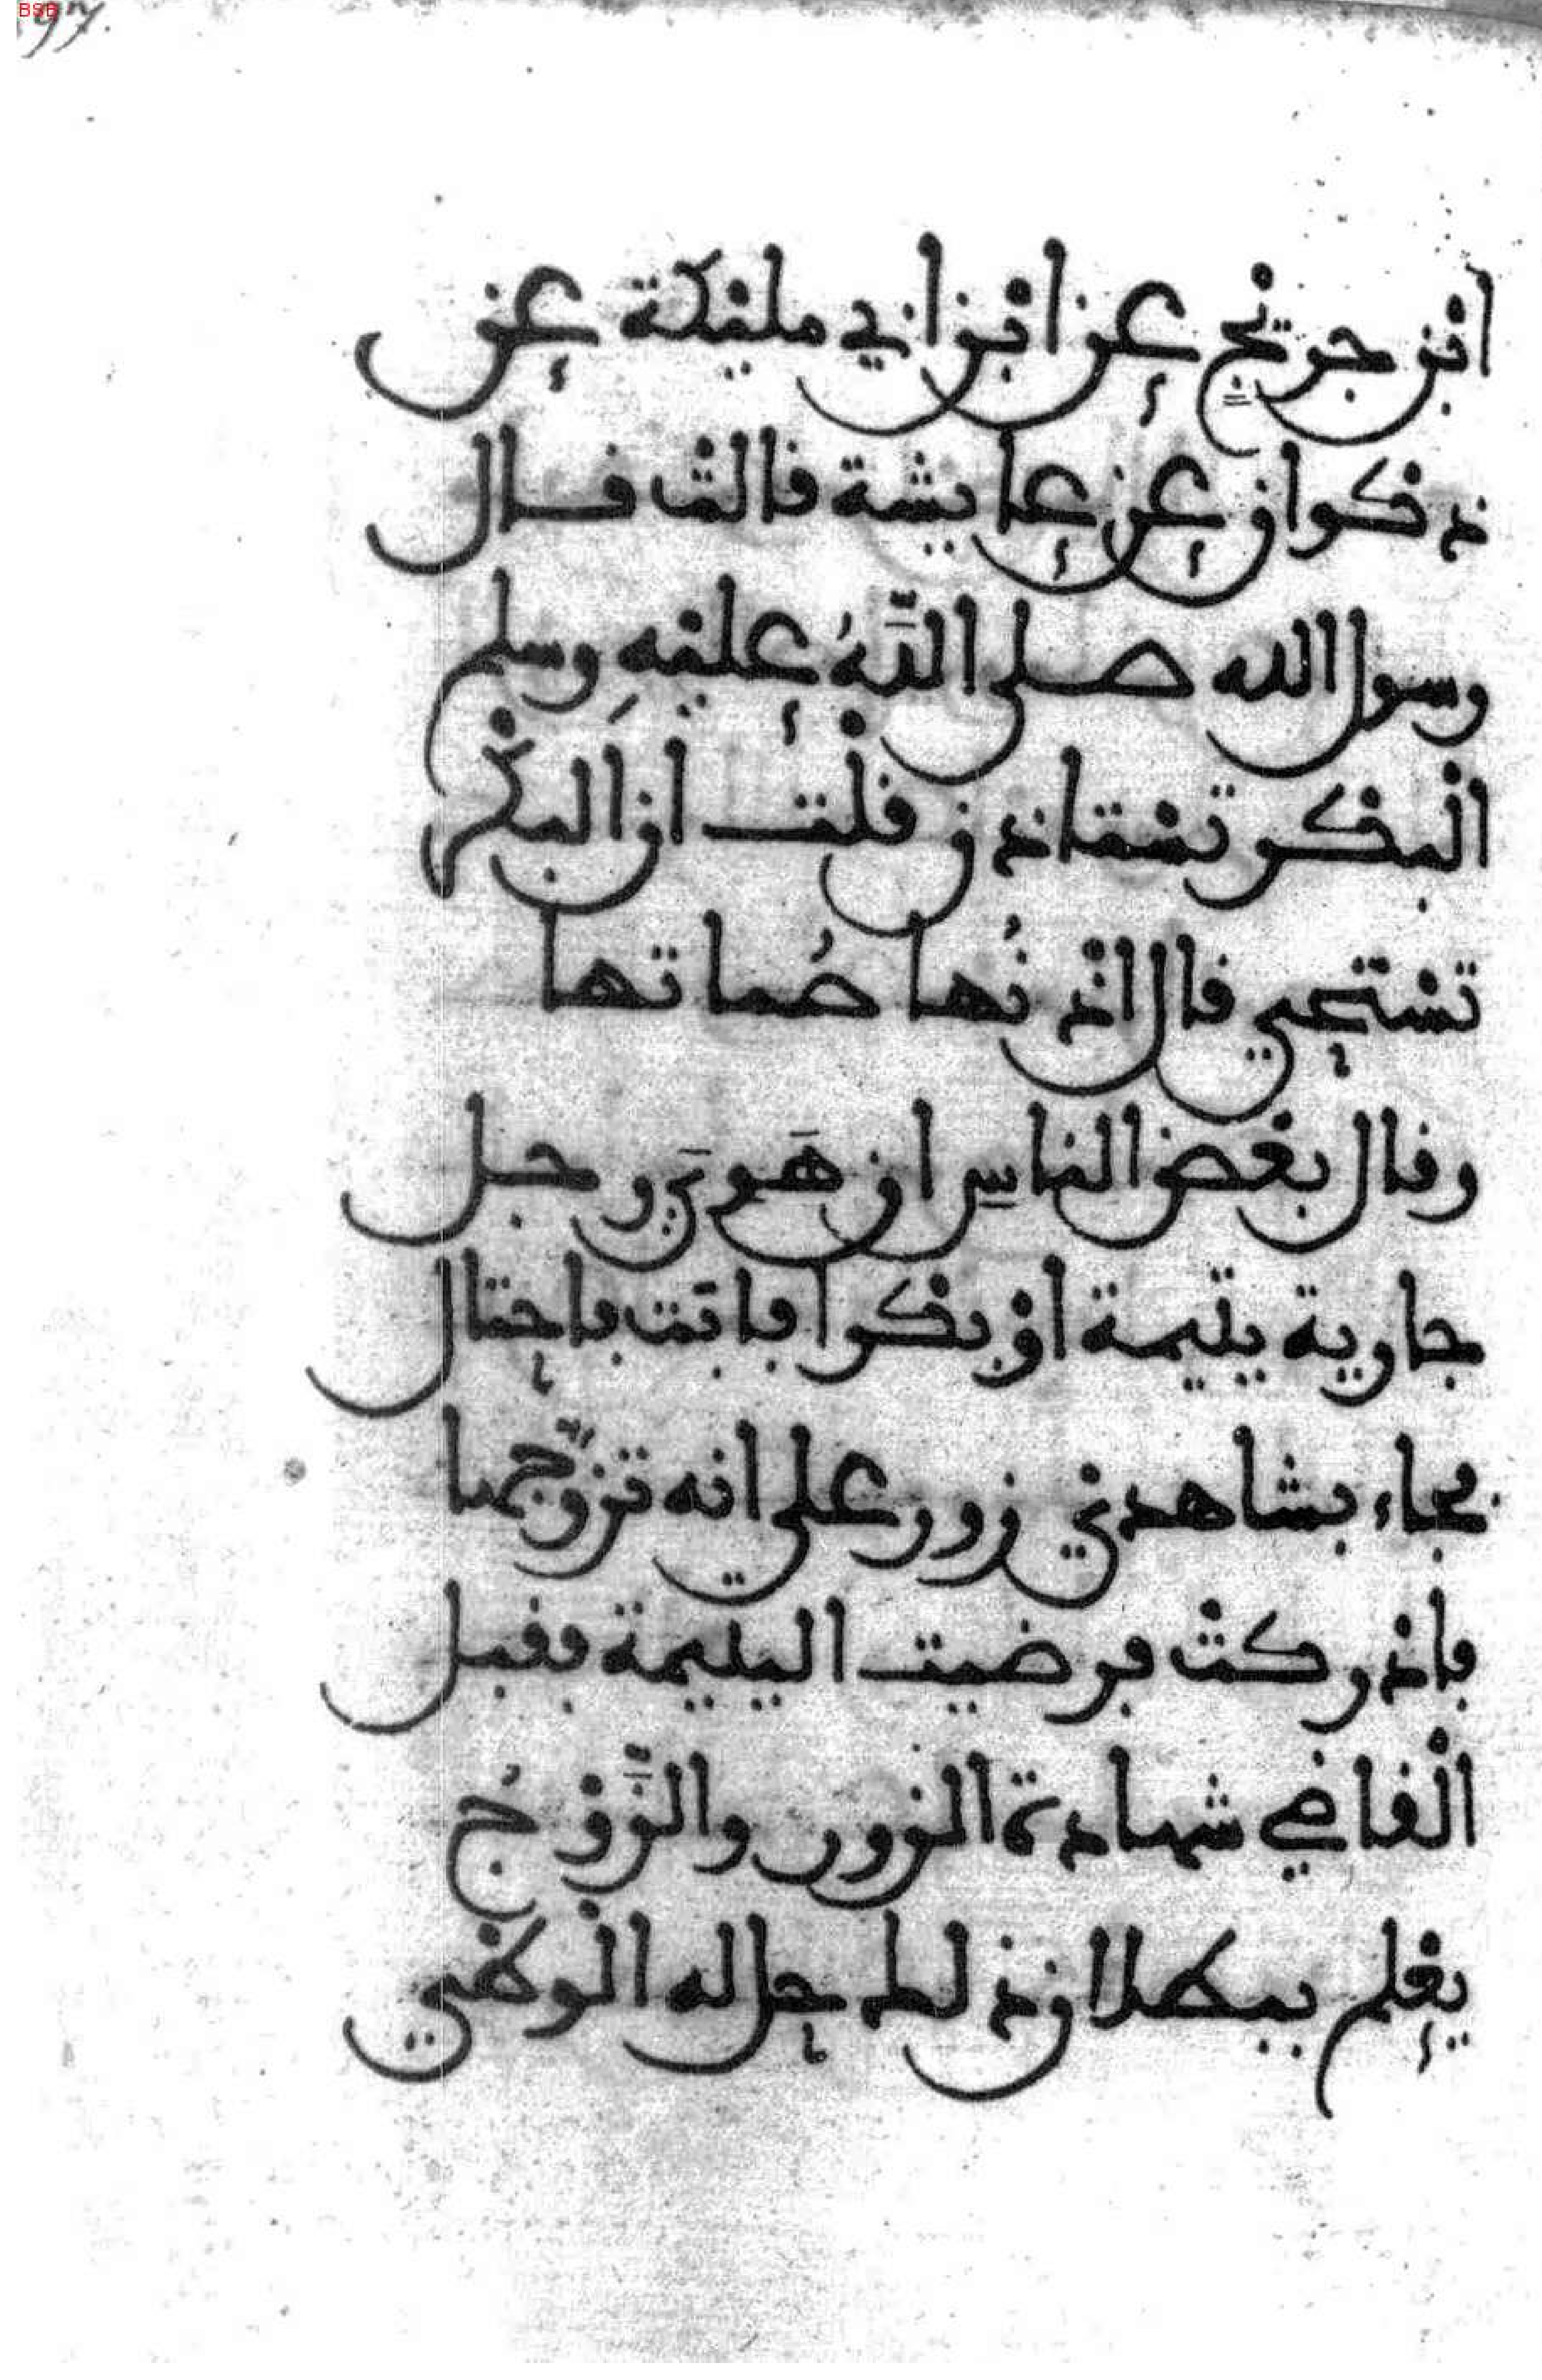 ابْن جريْج عن ابْن ابي مليْكة عن
ذكوان عن عايشة قالتْ قال
رسول الله صلى اللَّهُ عليْهِ وسلم
الْبكْر تسْتاذن قلْت انَّ الْبكْر
تسْتحيي قال اذْنُها صُماتها
وقال بعْض الناسِ ان هَوِيَ رجل
جارية يتيمة اوْ بكْرا فابَتْ فاحتال
فجاء بشاهديْ زور على انه تزوَّجها
فاذركتْ فرضيت اليتيمة فقبل
الْقاضي شهادة الزور والزَّوْجُ
يعْلم ببطلان ذلك حل له الْوطْي